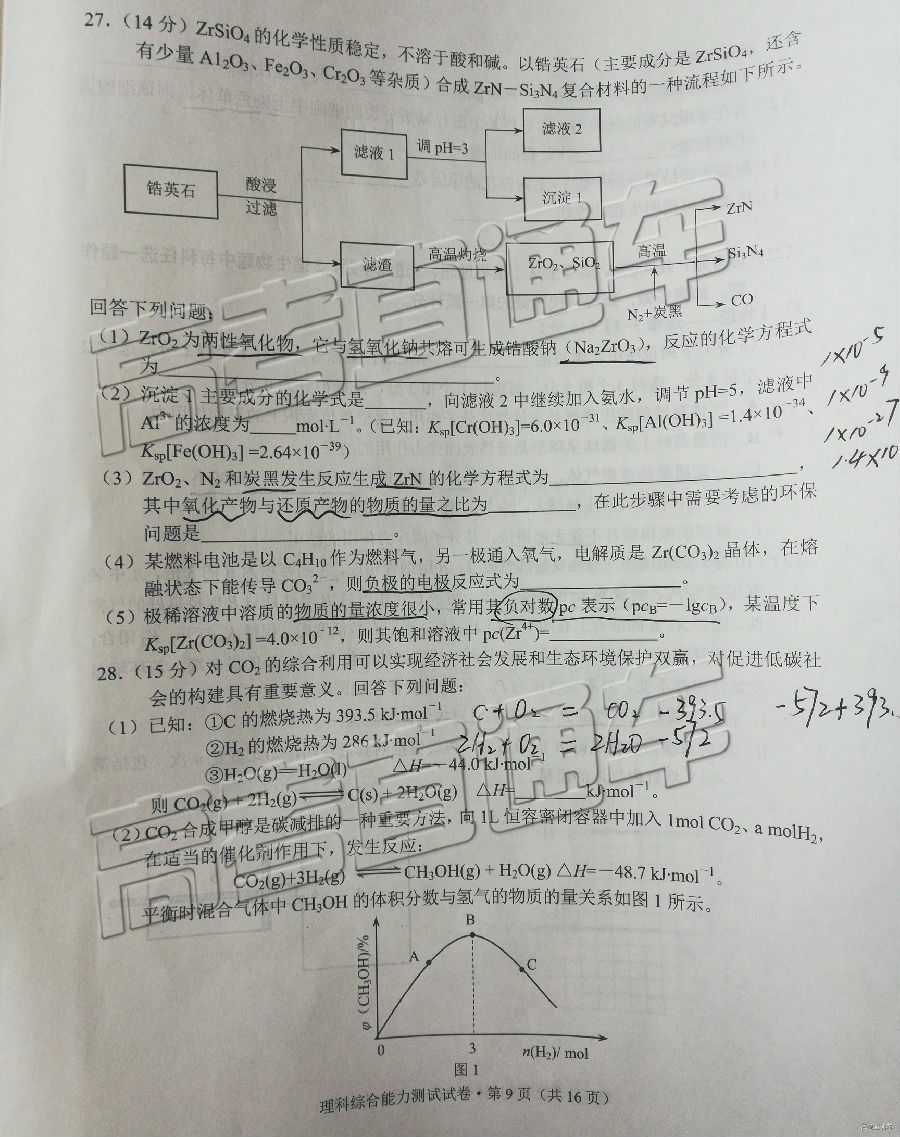 27.(14分)ZrSiO₄的化学性质稳定,不溶于酸和碱。以锆英石(主要成分是ZrSiO₄,还含
有少量Al₂O₃、Fe₂O₃、Cr₂O₃等杂质)合成ZrN-Si₃N₄复合材料的一种流程如下所示。
滤液2
滤液1
调pH=3
锆英石
酸浸
过滤
沉淀1
ZrN
滤渣
高温灼烧
ZrO₂、SiO₂
高温
Si₃N₄
N₂+炭黑
CO
回答下列问题:
(1)ZrO₂为两性氧化物,它与氢氧化钠共熔可生成锆酸钠(Na₂ZrO₃),反应的化学方程式
为______。
1×10⁻⁵
(2)沉淀1主要成分的化学式是______,向滤液2中继续加入氨水,调节pH=5,滤液中
1×10⁻⁹
Al³⁺的浓度为______mol·L⁻¹。(已知:Ksp[Cr(OH)₃]=6.0×10⁻³¹、Ksp[Al(OH)₃]=1.4×10⁻³⁴、
1×10⁻²⁷
Ksp[Fe(OH)₃]=2.64×10⁻³⁹)
1.4×10
(3)ZrO₂、N₂和炭黑发生反应生成ZrN的化学方程式为______,
其中氧化产物与还原产物的物质的量之比为______,在此步骤中需要考虑的环保
问题是______。
(4)某燃料电池是以C₄H₁₀作为燃料气,另一极通入氧气,电解质是Zr(CO₃)₂晶体,在熔
融状态下能传导CO₃²⁻,则负极的电极反应式为______。
(5)极稀溶液中溶质的物质的量浓度很小,常用其负对数pc表示(pcB=-lgcB),某温度下
Ksp[Zr(CO₃)₂]=4.0×10⁻¹²,则其饱和溶液中pc(Zr⁴⁺)=______。
28.(15分)对CO₂的综合利用可以实现经济社会发展和生态环境保护双赢,对促进低碳社
会的构建具有重要意义。回答下列问题:
(1)已知:①C的燃烧热为393.5 kJ·mol⁻¹
C+O₂ = CO₂ -393.5
-572+393.
②H₂的燃烧热为286 kJ·mol⁻¹
2H₂+O₂ = 2H₂O -572
③H₂O(g)=H₂O(l) ΔH=-44.0 kJ·mol⁻¹
则CO₂(g)+2H₂(g)⇌C(s)+2H₂O(g) ΔH=______kJ·mol⁻¹。
(2)CO₂合成甲醇是碳减排的一种重要方法,向1L恒容密闭容器中加入1mol CO₂、a molH₂,
在适当的催化剂作用下,发生反应:
CO₂(g)+3H₂(g)⇌CH₃OH(g)+H₂O(g) ΔH=-48.7 kJ·mol⁻¹。
平衡时混合气体中CH₃OH的体积分数与氢气的物质的量关系如图1所示。
φ(CH₃OH)/%
A
B
C
0
3
n(H₂)/ mol
图1
理科综合能力测试试卷·第9页(共16页)
高考直通车
高考直通车